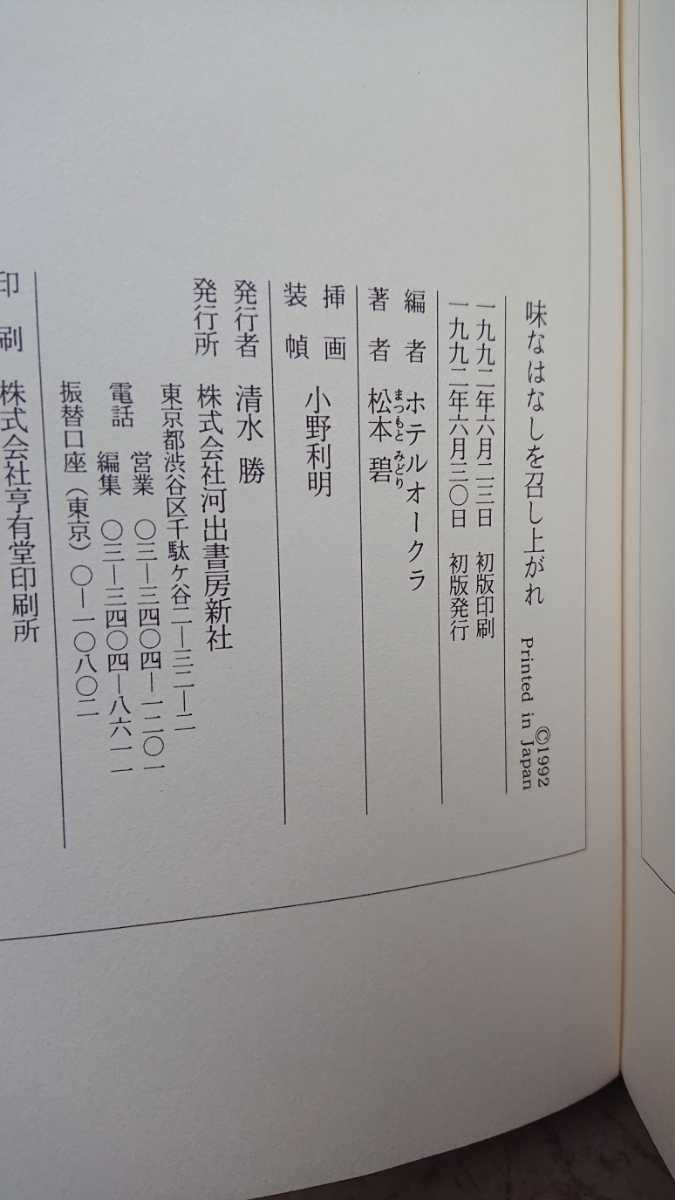 味なはなしを召し上がれ
©1992
Printed in Japan
一九九二年六月二三日 初版印刷
一九九二年六月三〇日 初版発行
編者 ホテルオークラ
まつもと みどり
著者 松本碧
挿画
装幀
小野利明
発行者 清水 勝
発行所 株式会社河出書房新社
東京都渋谷区千駄ケ谷二―三二―二
電話 営業 〇三―三四〇四―一二〇一
編集 〇三―三四〇四―八六一一
振替口座(東京)〇―一〇八〇二
印刷 株式会社亨有堂印刷所